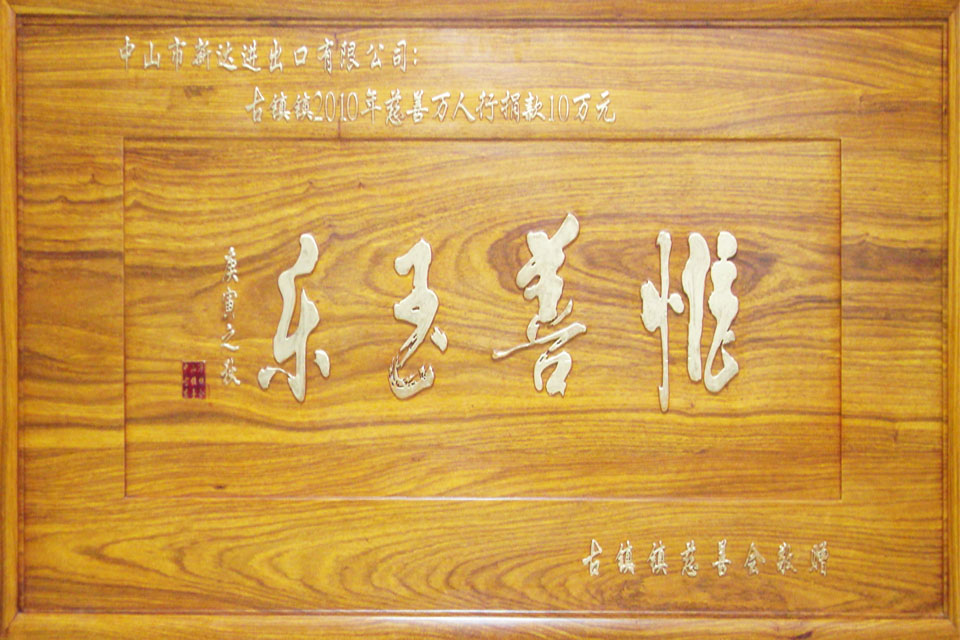 中山市新达进出口有限公司：
古镇镇2010年慈善万人行捐款10万元
惟善是乐
庚寅之秋
古镇镇慈善会敬赠